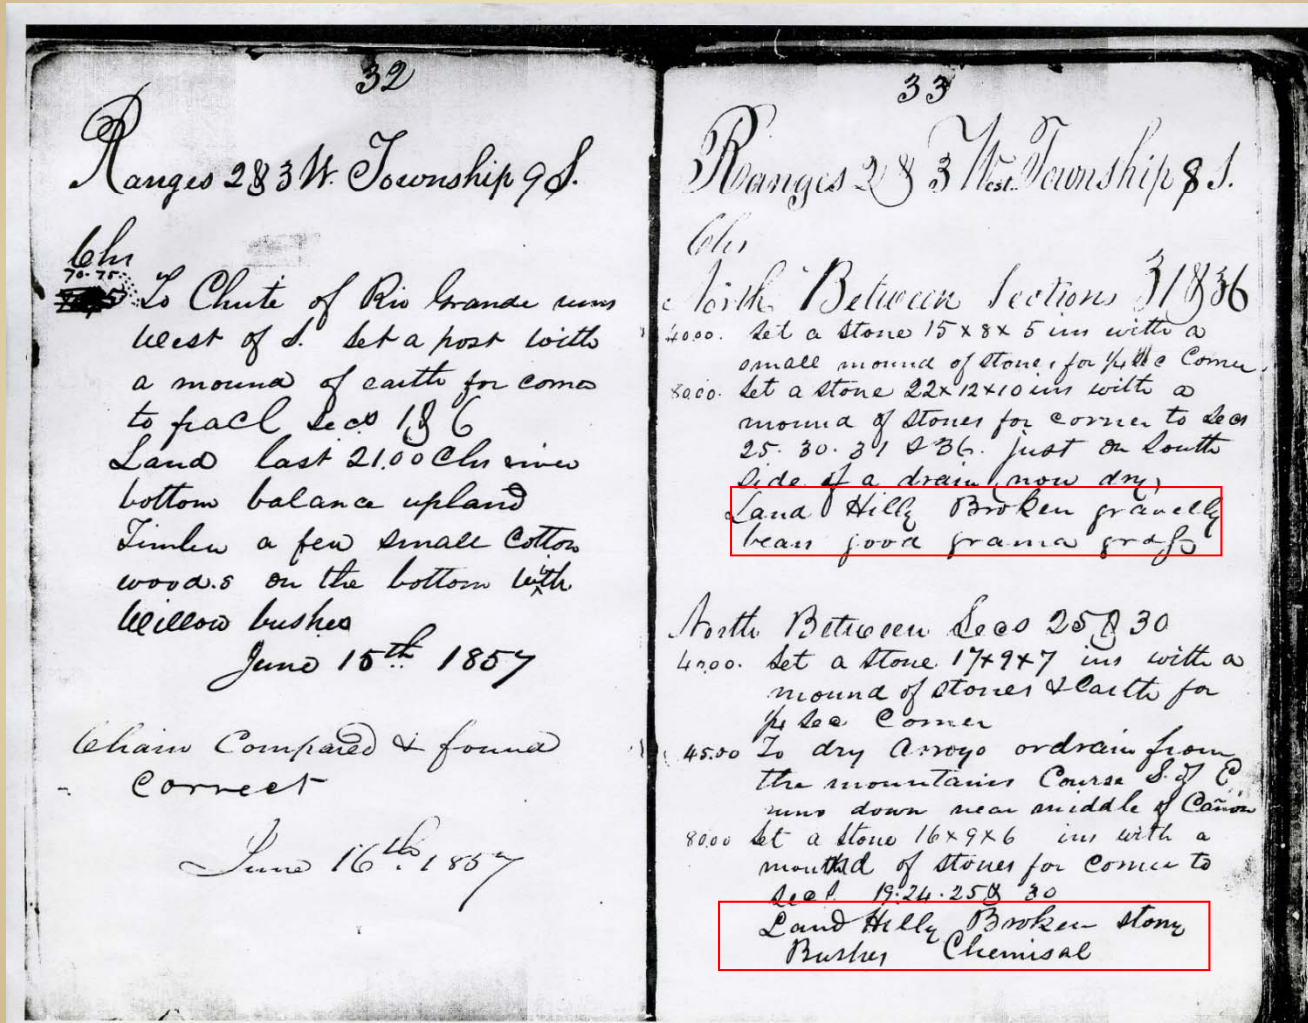 32
Ranges 2 & 3 W. Township 9 S.
Chs
70.75
To Chute of Rio Grande runs
West of S. Set a post with
a mound of earth for corner
to fracl Secs 1 & 6
Land last 21.00 Chs river
bottom balance upland
Timber a few small Cotton
woods on the bottom with
Willow bushes
June 15th 1857
Chain Compared & found
Correct
June 16th 1857
33
Ranges 2 & 3 West Township 8 S.
Chs
North Between Sections 31 & 36
40.00. Set a Stone 15 x 8 x 5 ins with a
small mound of stone, for 1/4 Sec Corner.
80.00. Set a stone 22 x 12 x 10 ins with a
mound of stones for corner to Secs
25. 30. 31 & 36. just on South
Side of a drain, now dry,
Land Hilly Broken gravelly
bears good grama grass
North Between Secs 25 & 30
40.00. Set a Stone 17 x 9 x 7 ins with a
mound of stones & Earth for
1/4 Sec Corner
45.00 To dry Arroyo or drain from
the mountains Course S. of E.
runs down near middle of Cañon
80.00 Set a Stone 16 x 9 x 6 ins with a
mound of stones for Corner to
Secs. 19. 24. 25 & 30
Land Hilly Broken stony
Bushes Chemisal